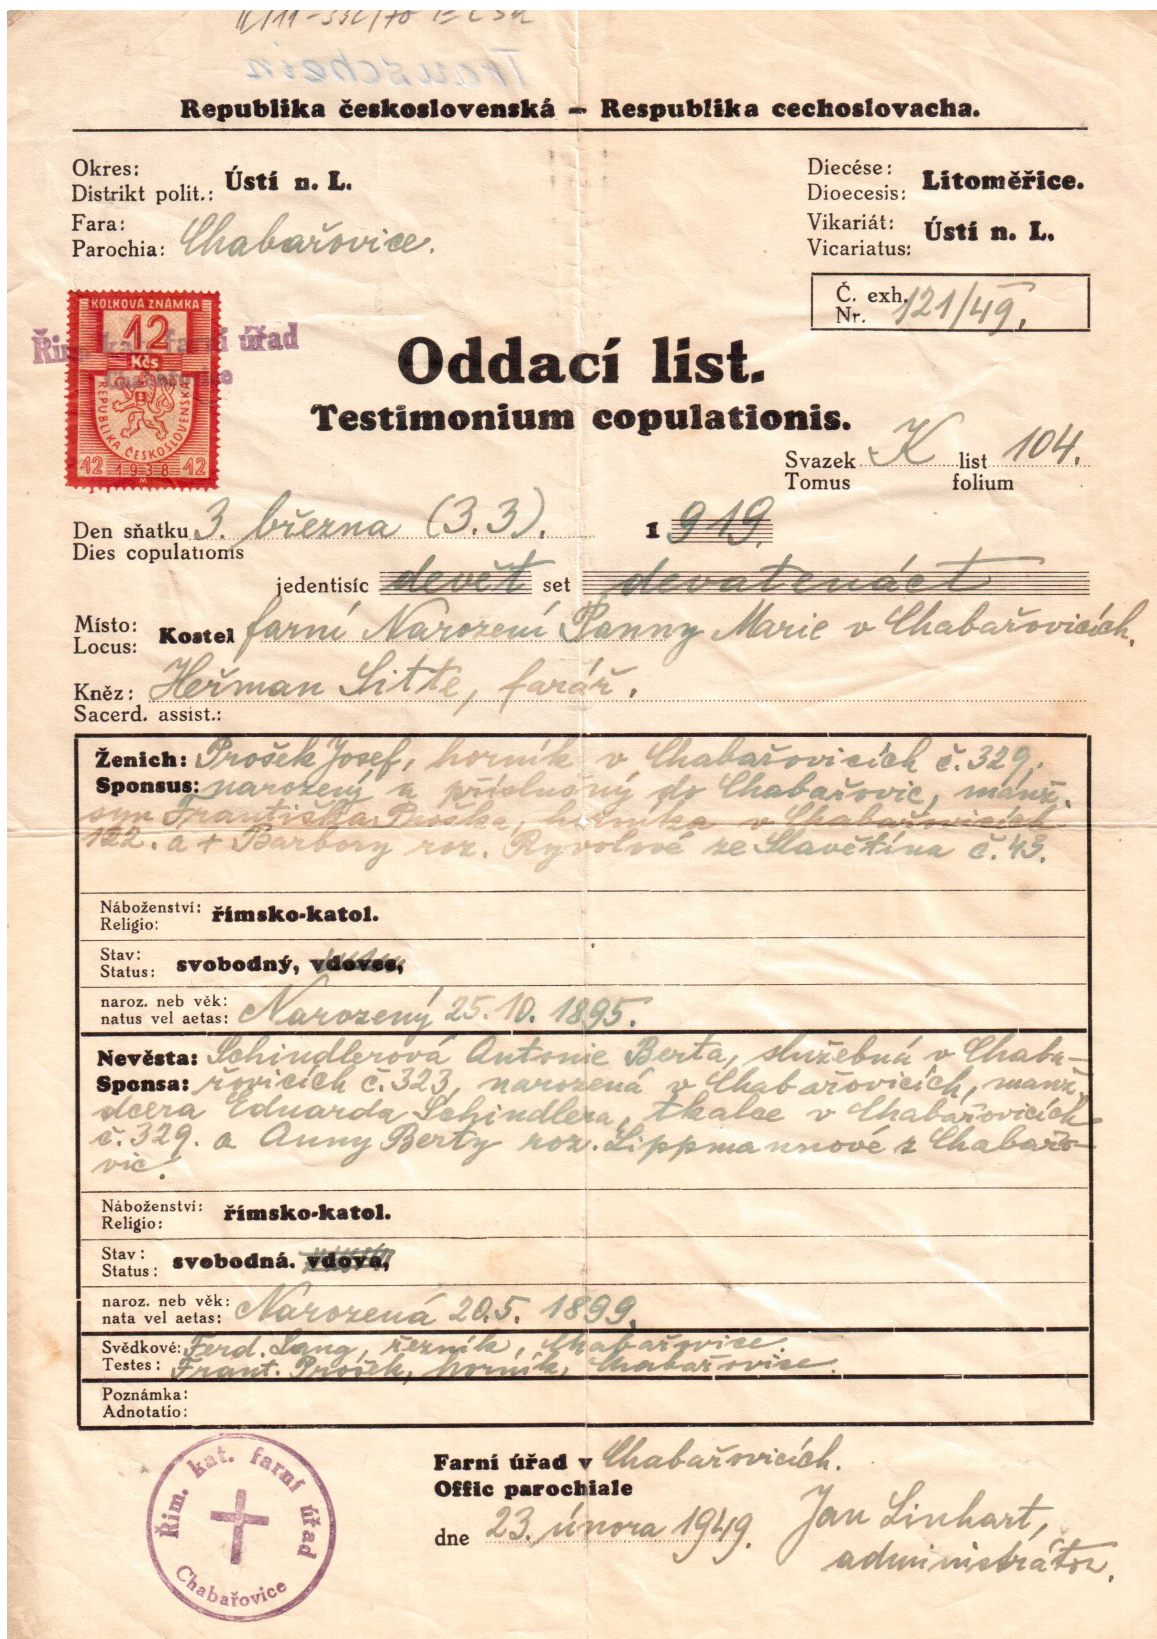 Trauschein
Republika československá – Respublika cechoslovacha.
Okres:
Distrikt polit.: Ústí n. L.
Fara:
Parochia: Chabařovice.
Diecése:
Dioecesis: Litoměřice.
Vikariát:
Vicariatus: Ústí n. L.
Č. exh.
Nr. 121/49.
KOLKOVÁ ZNÁMKA
12
Kčs
REPUBLIKA ČESKOSLOVENSKÁ
12 1938 12
Řím. kat. farní úřad
Chabařovice
Oddací list.
Testimonium copulationis.
Svazek K list 104.
Tomus folium
Den sňatku 3. března (3.3). 1 919.
Dies copulationis
jedentisíc devět set devatenáct
Místo:
Locus: Kostel farní Narození Panny Marie v Chabařovicích.
Kněz: Heřman Sitte, farář.
Sacerd. assist.:
Ženich: Prošek Josef, horník v Chabařovicích č. 329.
Sponsus: narozený a příslušný do Chabařovic, manž.
syn Františka Proška, horníka v Chabařovicích
122. a + Barbory roz. Ryvolové ze Slavětína č. 43.
Náboženství:
Religio: římsko-katol.
Stav:
Status: svobodný, vdovec,
naroz. neb věk:
natus vel aetas: Narozený 25.10. 1895.
Nevěsta: Schindlerová Antonie Berta, služebná v Chaba-
Sponsa: řovicích č. 323, narozená v Chabařovicích, manž.
dcera Eduarda Schindlera, tkalce v Chabařovicích
č. 329. a Anny Berty roz. Lippmannové z Chabařo-
vic.
Náboženství:
Religio: římsko-katol.
Stav:
Status: svobodná. vdova,
naroz. neb věk:
nata vel aetas: Narozená 20.5. 1899.
Svědkové: Ferd. Lang, řezník, Chabařovice.
Testes: Frant. Prošek, horník, Chabařovice.
Poznámka:
Adnotatio:
Farní úřad v Chabařovicích.
Offic parochiale
dne 23. února 1949. Jan Linhart,
administrátor.
Řím. kat. farní úřad
Chabařovice